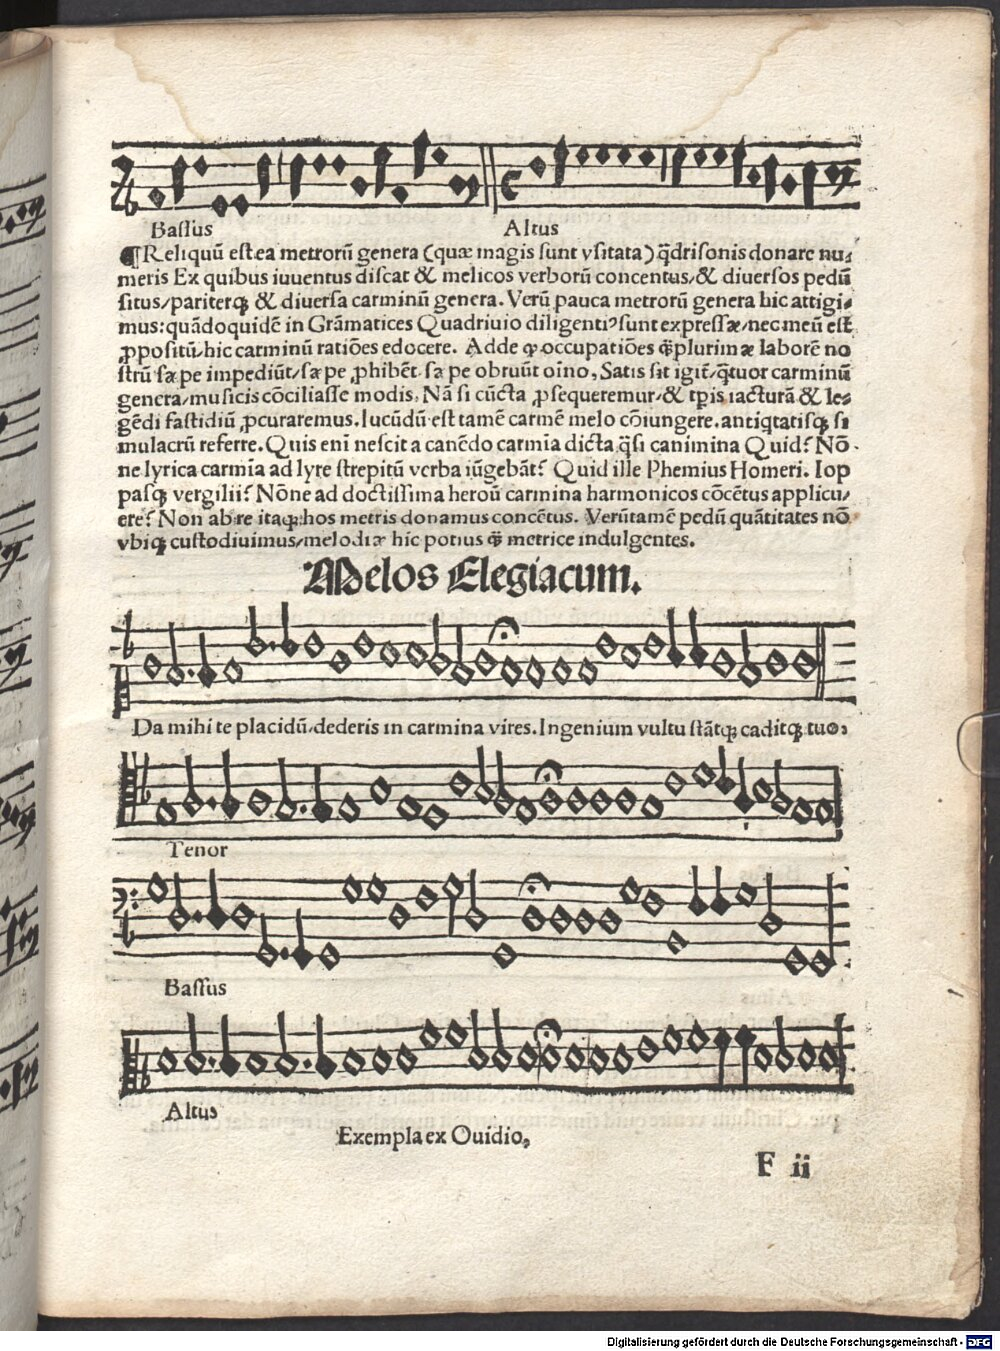 Bassus Altus
¶Reliquũ est.ea metrorũ genera (quæ magis sunt vsitata) q̃drisonis donare nu⸗
meris Ex quibus iuuentus discat & melicos verborũ concentus/& diuersos pedũ
situs/pariterqꝫ & diuersa carminũ genera. Verũ pauca metrorũ genera hic attigi⸗
mus:quãdoquidẽ in Grãmatices Quadriuio diligentiꝰ sunt expressæ/nec meũ est
ꝓpositũ/hic carminũ ratiões edocere. Adde ꝙ occupatiões q̃plurimæ laborẽ no
strũ sæpe impediũt/sæpe ꝓhibẽt sæpe obruũt oĩno, Satis sit igiť q̃tuor carminũ
genera/musicis cõciliasse modis, Nã si cũcta ꝓsequeremur/& tꝑis iacturã & le⸗
gẽdi fastidiũ ꝓcuraremus. Iucũdũ est tamẽ carmẽ melo cõiungere. antiq̃tatisqꝫ si
mulacrũ referre. Quis eni nescit a canẽdo carmia dicta q̃si canimina Quid? Nõ⸗
ne lyrica carmia ad lyre strepitũ verba iũgebãt? Quid ille Phemius Homeri. Iop
pasqꝫ vergilii? Nõne ad doctissima heroũ carmina harmonicos cõcẽtus applicu⸗
ere? Non ab re itaqꝫ hos metris donamus concẽtus. Verũtamẽ pedũ quãtitates nõ
vbiqꝫ custodiuimus/melodiæ hic potius q̃ metrice indulgentes.
Melos Elegiacum.
Da mihi te placidũ/dederis in carmina vires. Ingenium vultu stãtqꝫ caditqꝫ tuo,
Tenor
Bassus
Altus
Exempla ex Ouidio,
F ii
Digitalisierung gefördert durch die Deutsche Forschungsgemeinschaft - DFG